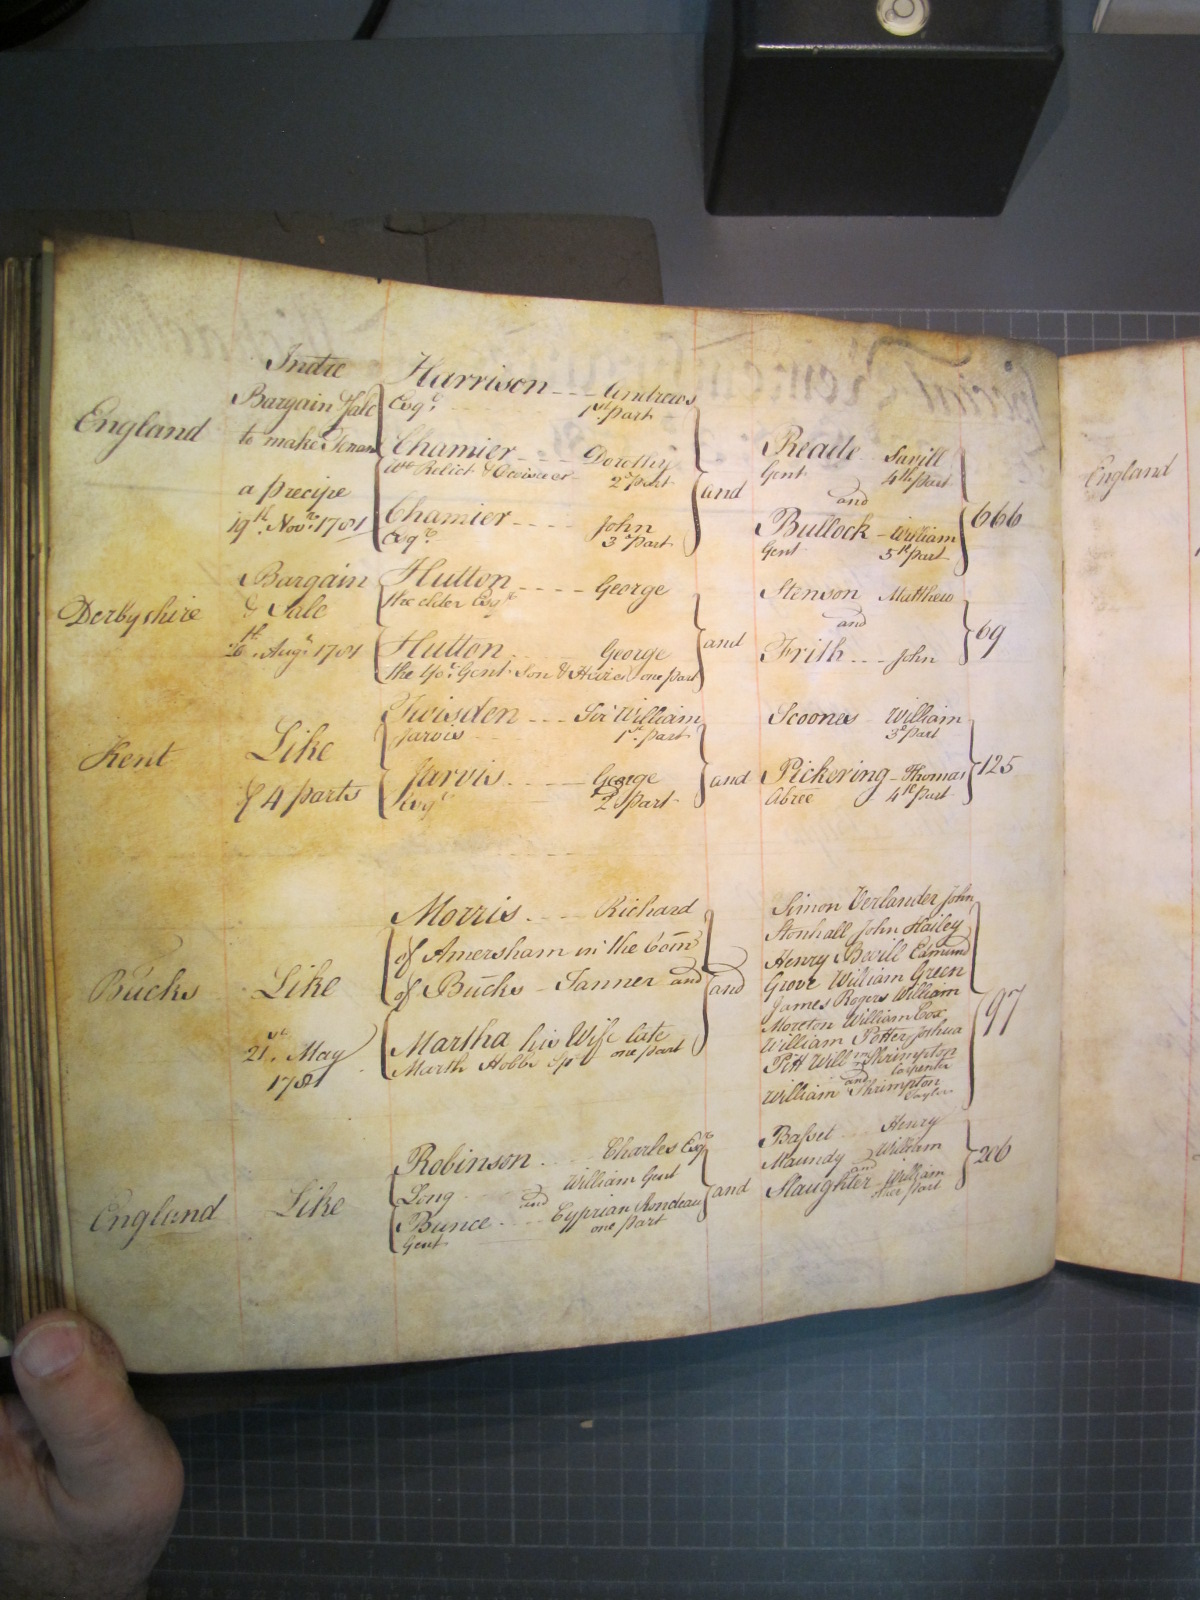 England
Indre
Bargain Sale
to make Tenant
a precipe
19th. Novr. 1781
Harrison --- Andrews
Esqr. 1st part
Chamier --- Dorothy
Wid Relict & Devisee 2d part
Chamier --- John
Esqr. 3d part
and
Reade Savill
Gent 4th part
and
Bullock - William
Gent 5th part
666
Derbyshire
Bargain
& Sale
6th. Augt 1781
Hutton --- George
the elder Esqr
Hutton --- George
the Yor. Gent Son & Heir one part
and
Stenson Matthew
and
Frith --- John
69
Kent
Like
of 4 parts
Twisden --- Sir William
Jarvis 1st part
Jarvis --- George
Esqr 2d part
and
Scoones William
3d part
Pickering - Thomas
Abree 4th part
125
Bucks
Like
21st. May
1781
Morris --- Richard
of Amersham in the Com
of Bucks - Tanner and
Martha his Wife late
Marth Hobbs Sp one part
and
Simon Verlander John
Stonhall John Hailey
Henry Bevill Edmund
Grove William Green
James Rogers William
Moreton William Cox
William Potter Joshua
Pitt Will Shrimpton
Carpenter
and
William Shrimpton
Taylor
97
England
Like
Robinson --- Charles Esqr
Long William Gent
and
Bunce --- Cyprian Rondeau
Gent one part
and
Basset Henry
Maundy William
and
Slaughter William
other part
206
England